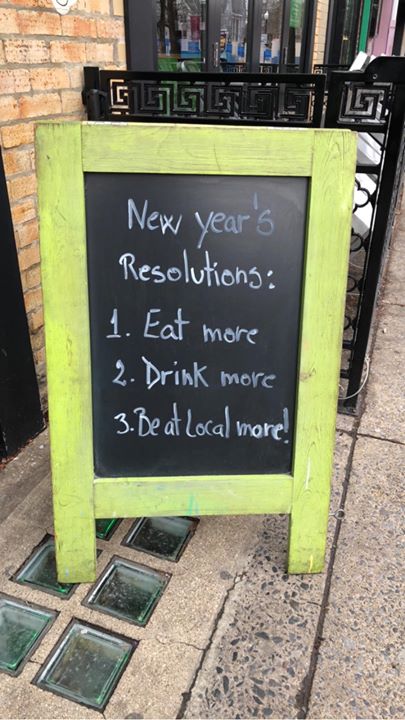 New year's
Resolutions:
1. Eat more
2. Drink more
3. Be at Local more!